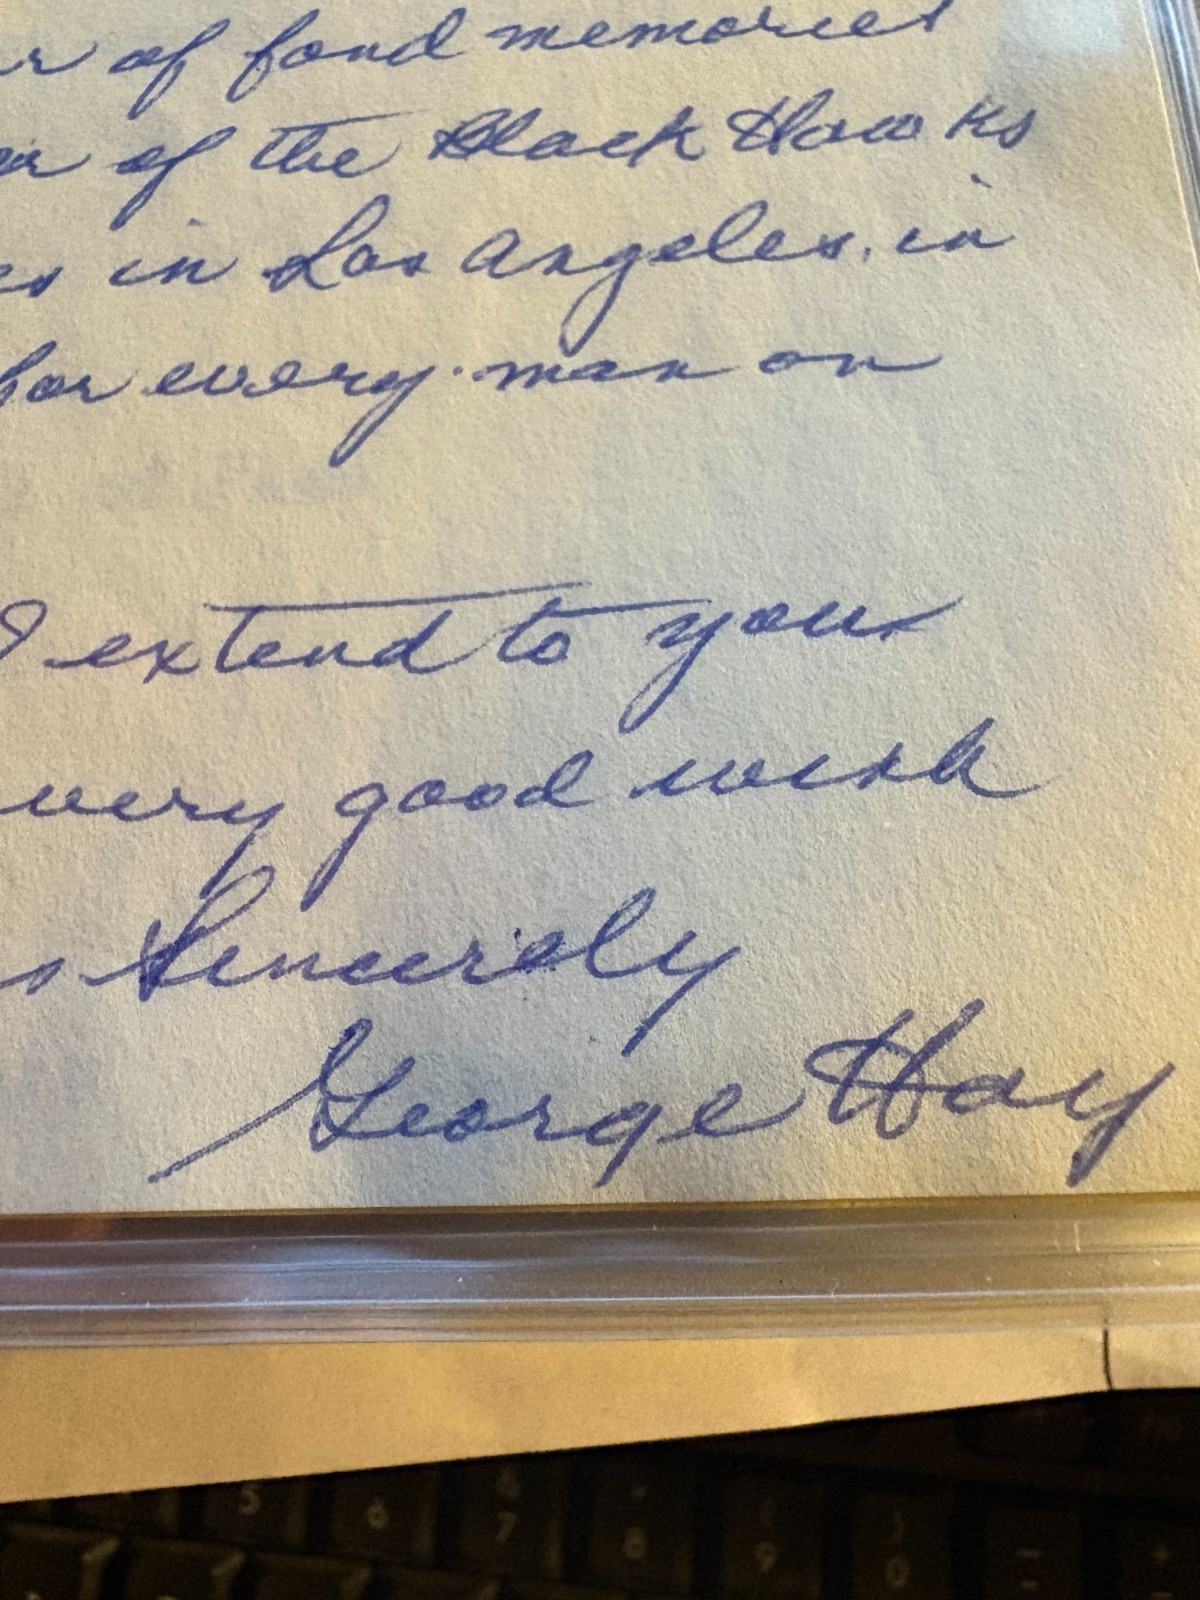 of fond memories
of the Black Hawks
in Los Angeles, in
for every man on
I extend to you
very good wish
Sincerely
George Hay
5 6 7 8 9 0